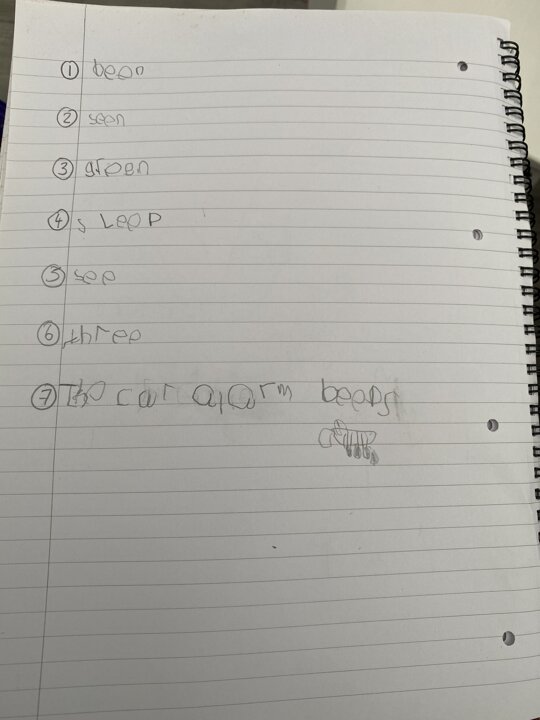 ① been
② seen
③ green
④ sleep
⑤ see
⑥ three
⑦ The car alarm beeps